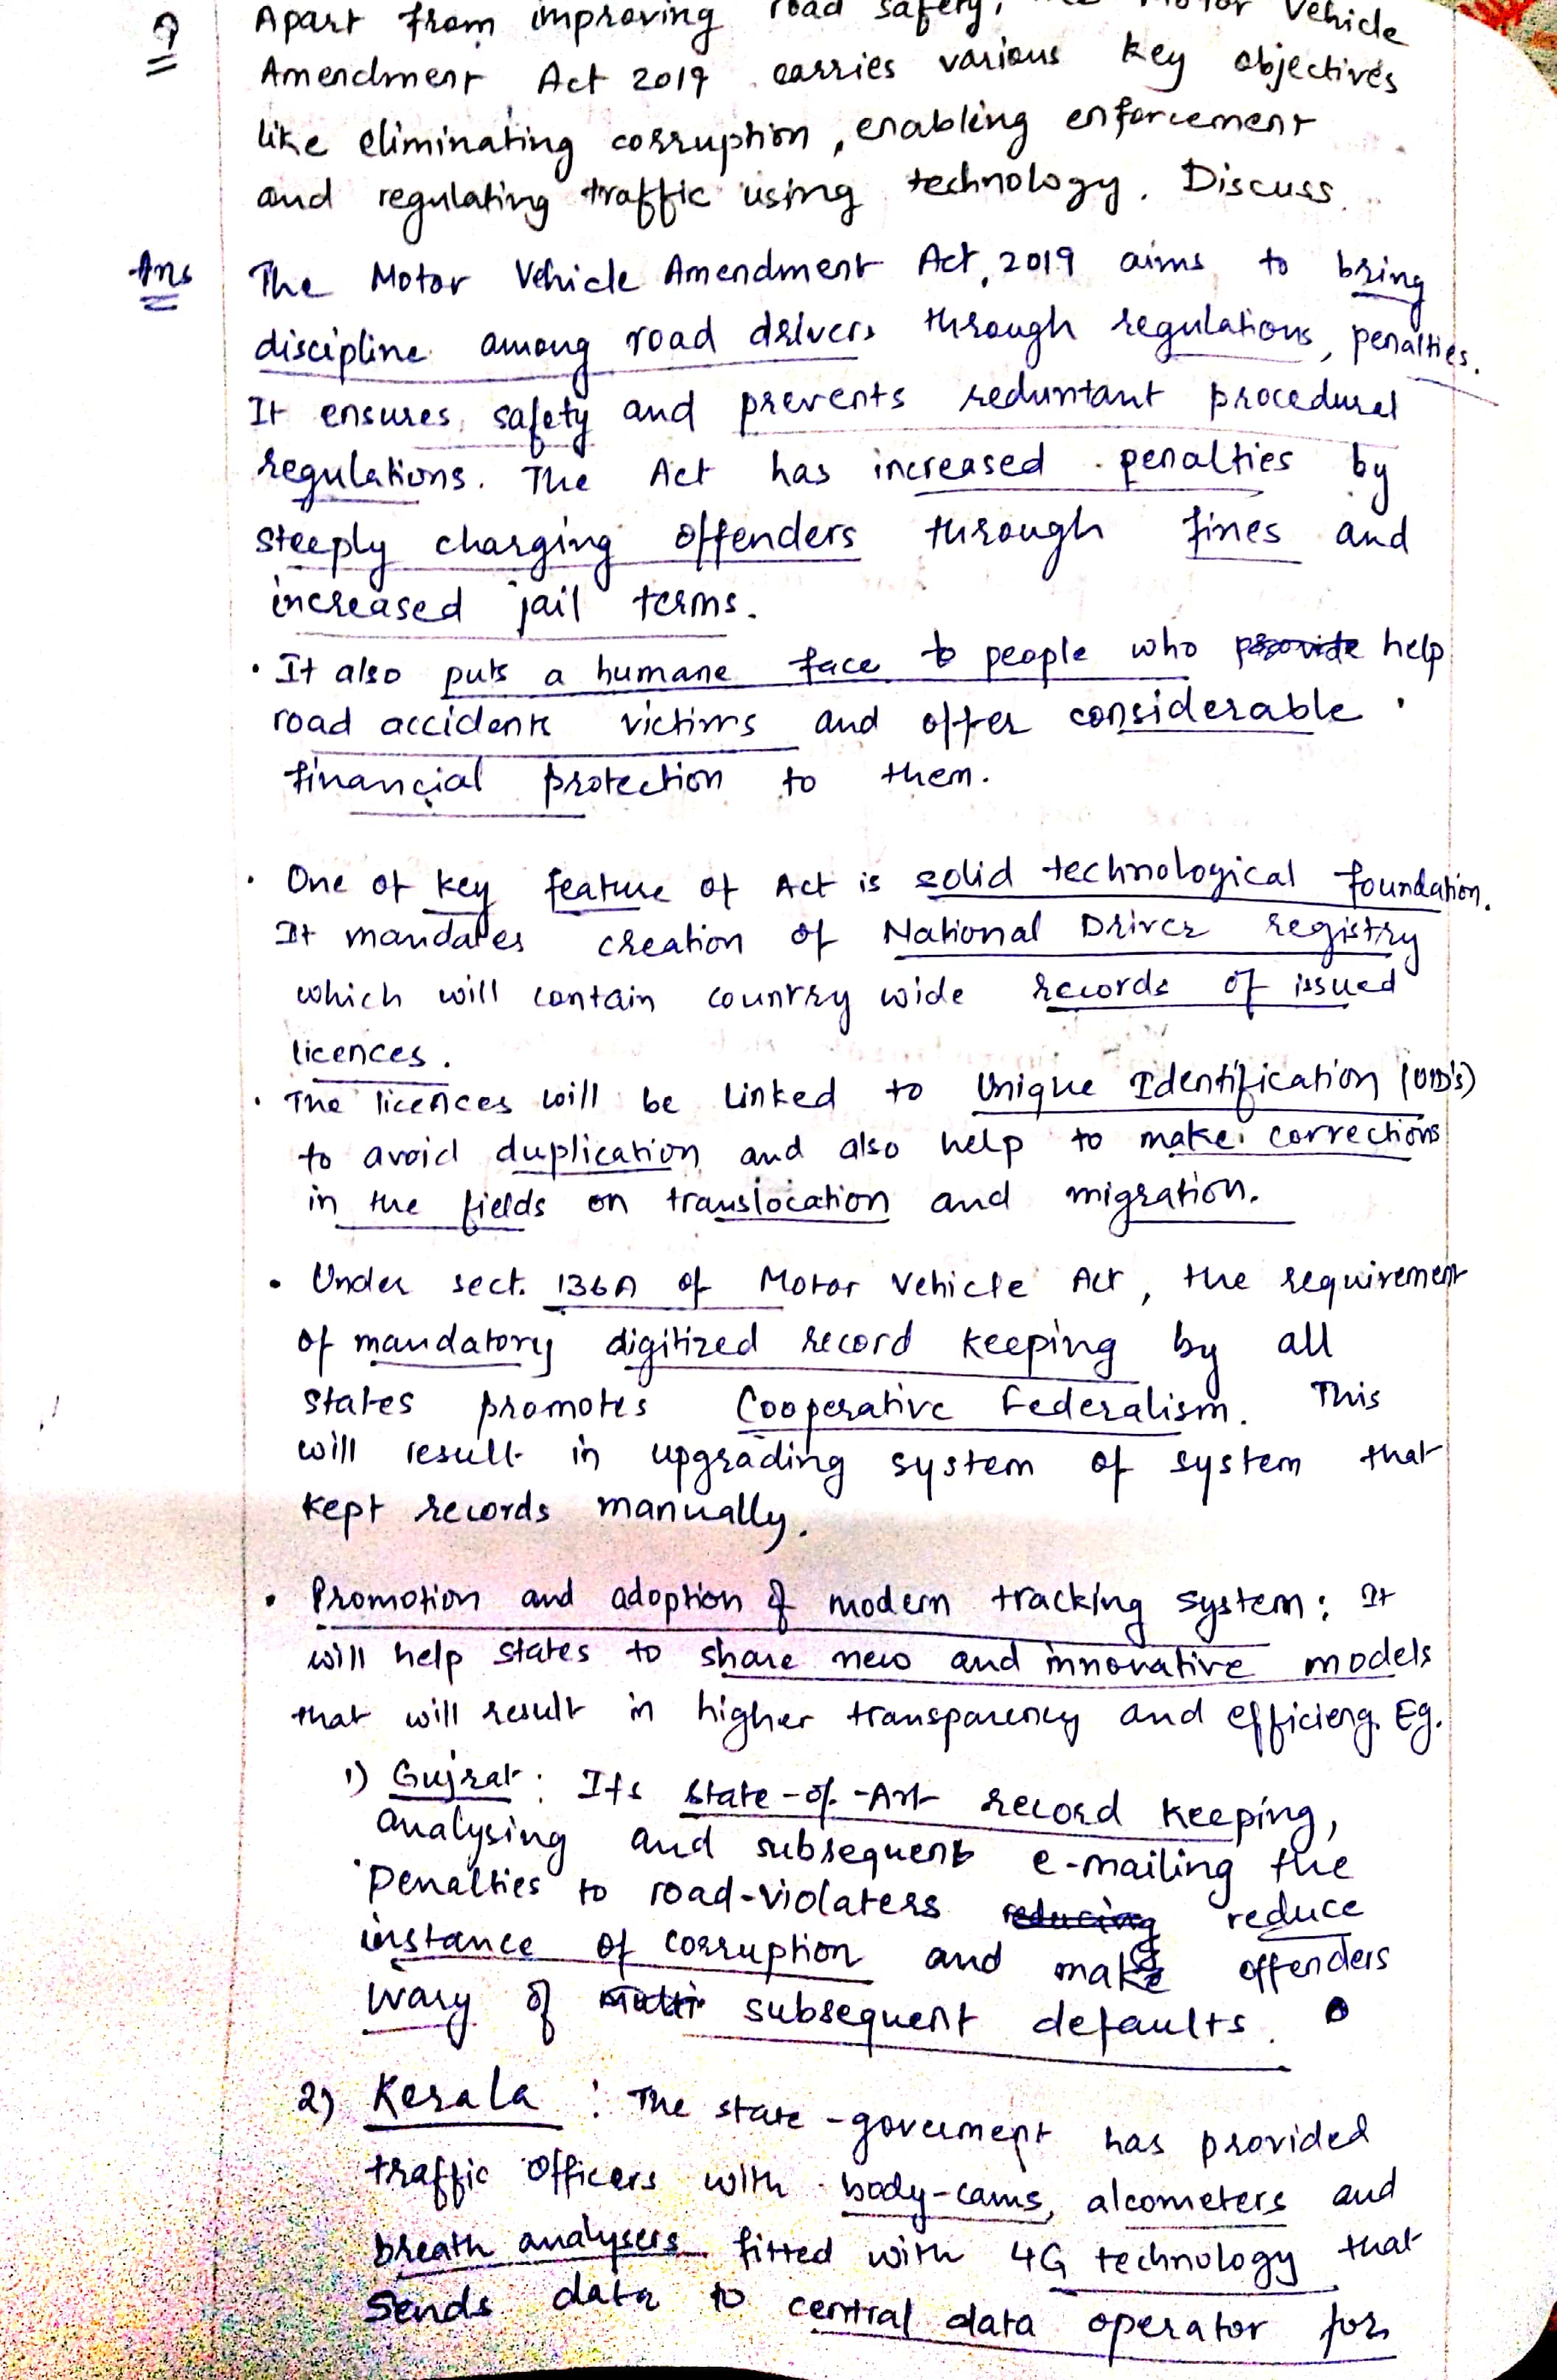 ? Apart from improving road safety, Motor Vehicle
Amendment Act 2019 carries various key objectives
like eliminating corruption, enabling enforcement
and regulating traffic using technology. Discuss.
Ans The Motor Vehicle Amendment Act, 2019 aims to bring
discipline among road drivers through regulations, penalties.
It ensures safety and prevents reduntant procedural
regulations. The Act has increased penalties by
steeply charging offenders through fines and
increased jail terms.
• It also puts a humane face to people who provide help
road accidents victims and offer considerable
financial protection to them.
• One of key feature of Act is solid technological foundation.
It mandates creation of National Driver registry
which will contain country wide records of issued
licences.
• The licences will be linked to Unique Identification (UID's)
to avoid duplication and also help to make corrections
in the fields on translocation and migration.
• Under sect. 136A of Motor Vehicle Act, the requirement
of mandatory digitized record keeping by all
states promotes Cooperative Federalism. This
will result in upgrading system of system that
kept records manually.
• Promotion and adoption of modern tracking system: It
will help states to share new and innovative models
that will result in higher transparency and efficieng. Eg.
1) Gujrat: Its state-of-Art record keeping,
analysing and subsequent e-mailing the
penalties to road-violaters reducing reduce
instance of corruption and make offenders
wary of subsequent defaults.
2) Kerala: The state-goverment has provided
traffic officers with body-cams, alcometers and
breath analysers fitted with 4G technology that
sends data to central data operator for